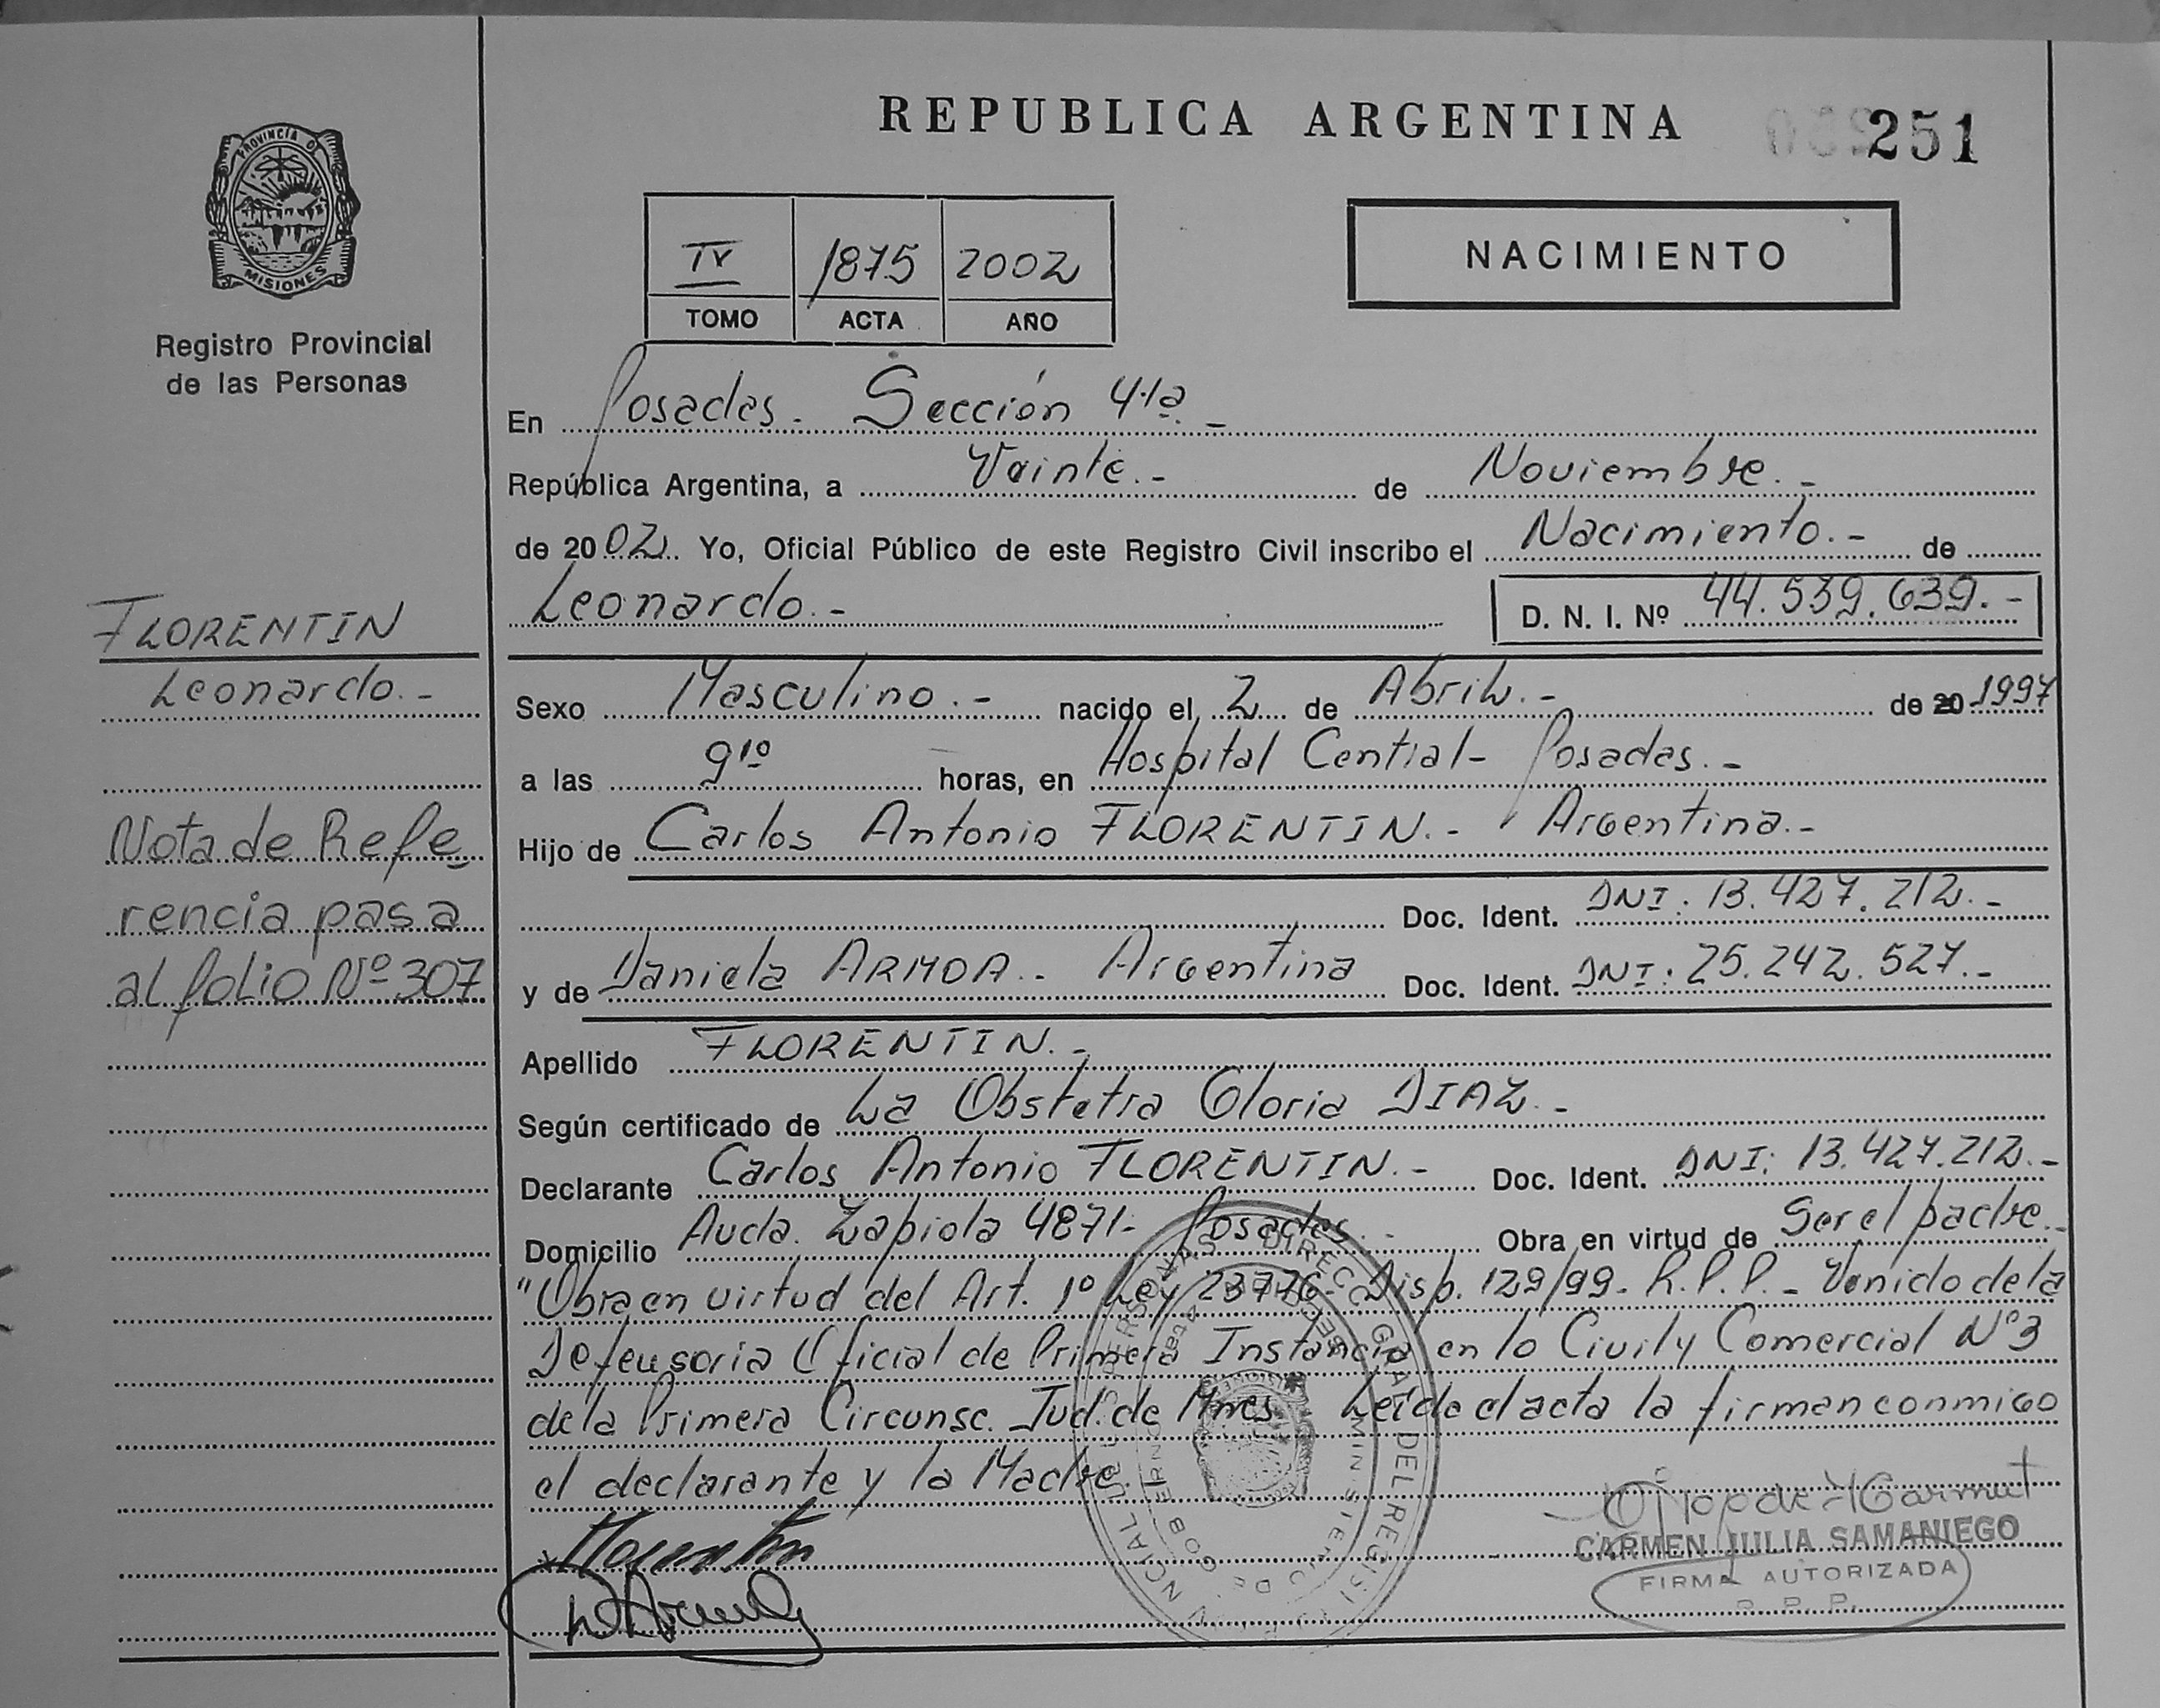 REPUBLICA ARGENTINA
251
PROVINCIA DE
MISIONES
Registro Provincial
de las Personas
IV 1875 2002
TOMO ACTA AÑO
NACIMIENTO
En Posadas.- Sección 4ta.-
República Argentina, a Veinte.- de Noviembre.-
de 2002. Yo, Oficial Público de este Registro Civil inscribo el Nacimiento.- de
Leonardo.- D. N. I. Nº 44.539.639.-
FLORENTIN
Leonardo.-
Nota de Refe
rencia pasa
al folio Nº 307
Sexo Masculino.- nacido el 2 de Abril.- de 20 1997
a las 9 10 horas, en Hospital Central- Posadas.-
Hijo de Carlos Antonio FLORENTIN.- Argentina.-
Doc. Ident. DNI: 13.427.212.-
y de Daniela ARMOA.- Argentina Doc. Ident. DNI: 25.242.527.-
Apellido FLORENTIN.-
Según certificado de La Obstetra Gloria DIAZ.-
Declarante Carlos Antonio FLORENTIN.- Doc. Ident. DNI: 13.427.212.-
Domicilio Avda. Zapiola 4871- Posadas.- Obra en virtud de Ser el padre.-
"Obra en virtud del Art. 1º Ley 23776- Disp. 129/99- R.P.P.- Venido de la
Defensoria Oficial de Primera Instancia en lo Civil y Comercial Nº 3
de la Primera Circunsc. Jud. de Mnes. Leída el acta la firman conmigo
el declarante y la Madre
CARMEN JULIA SAMANIEGO
FIRMA AUTORIZADA
R. P. P.